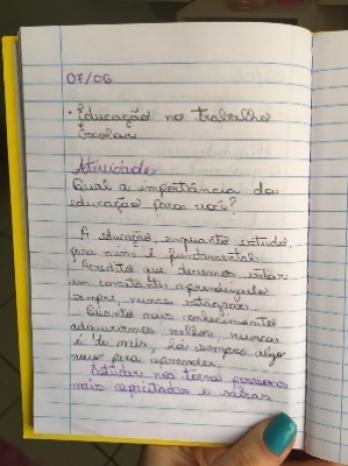 07/06
• Educação no trabalho
Escolar
Atividade
Qual a importância da
educação para você?
A educação, enquanto estudo,
para mim é fundamental.
Acredito que devemos estar
em constante aprendizado
sempre, nunca estagnar.
Quanto mais conhecimento
adquirirmos melhor, nunca
é de mais, há sempre algo
novo para aprender.
Estudar nos torna pessoas
mais capacitadas e sábias